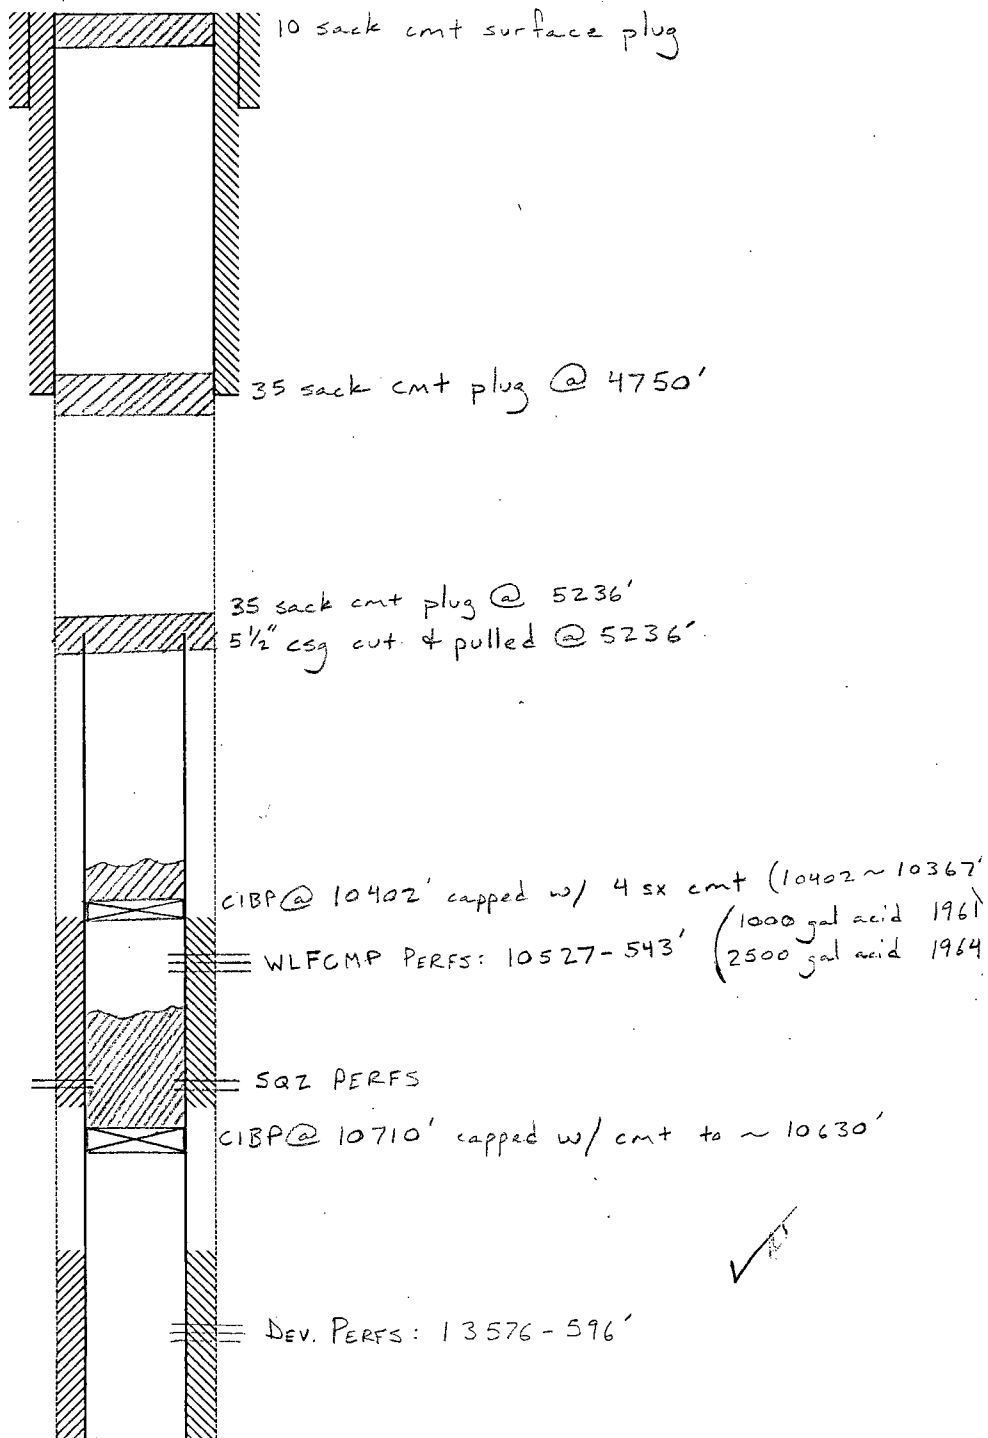 10 sack cmt surface plug
35 sack cmt plug @ 4750'
35 sack cmt plug @ 5236'
5 1/2" csg cut & pulled @ 5236'
CIBP @ 10402' capped w/ 4 sx cmt (10402 ~ 10367'
(1000 gal acid 1961)
WLFCMP PERFS: 10527-543' (2500 gal acid 1964
SQZ PERFS
CIBP @ 10710' capped w/ cmt to ~ 10630'
DEV. PERFS: 13576-596'